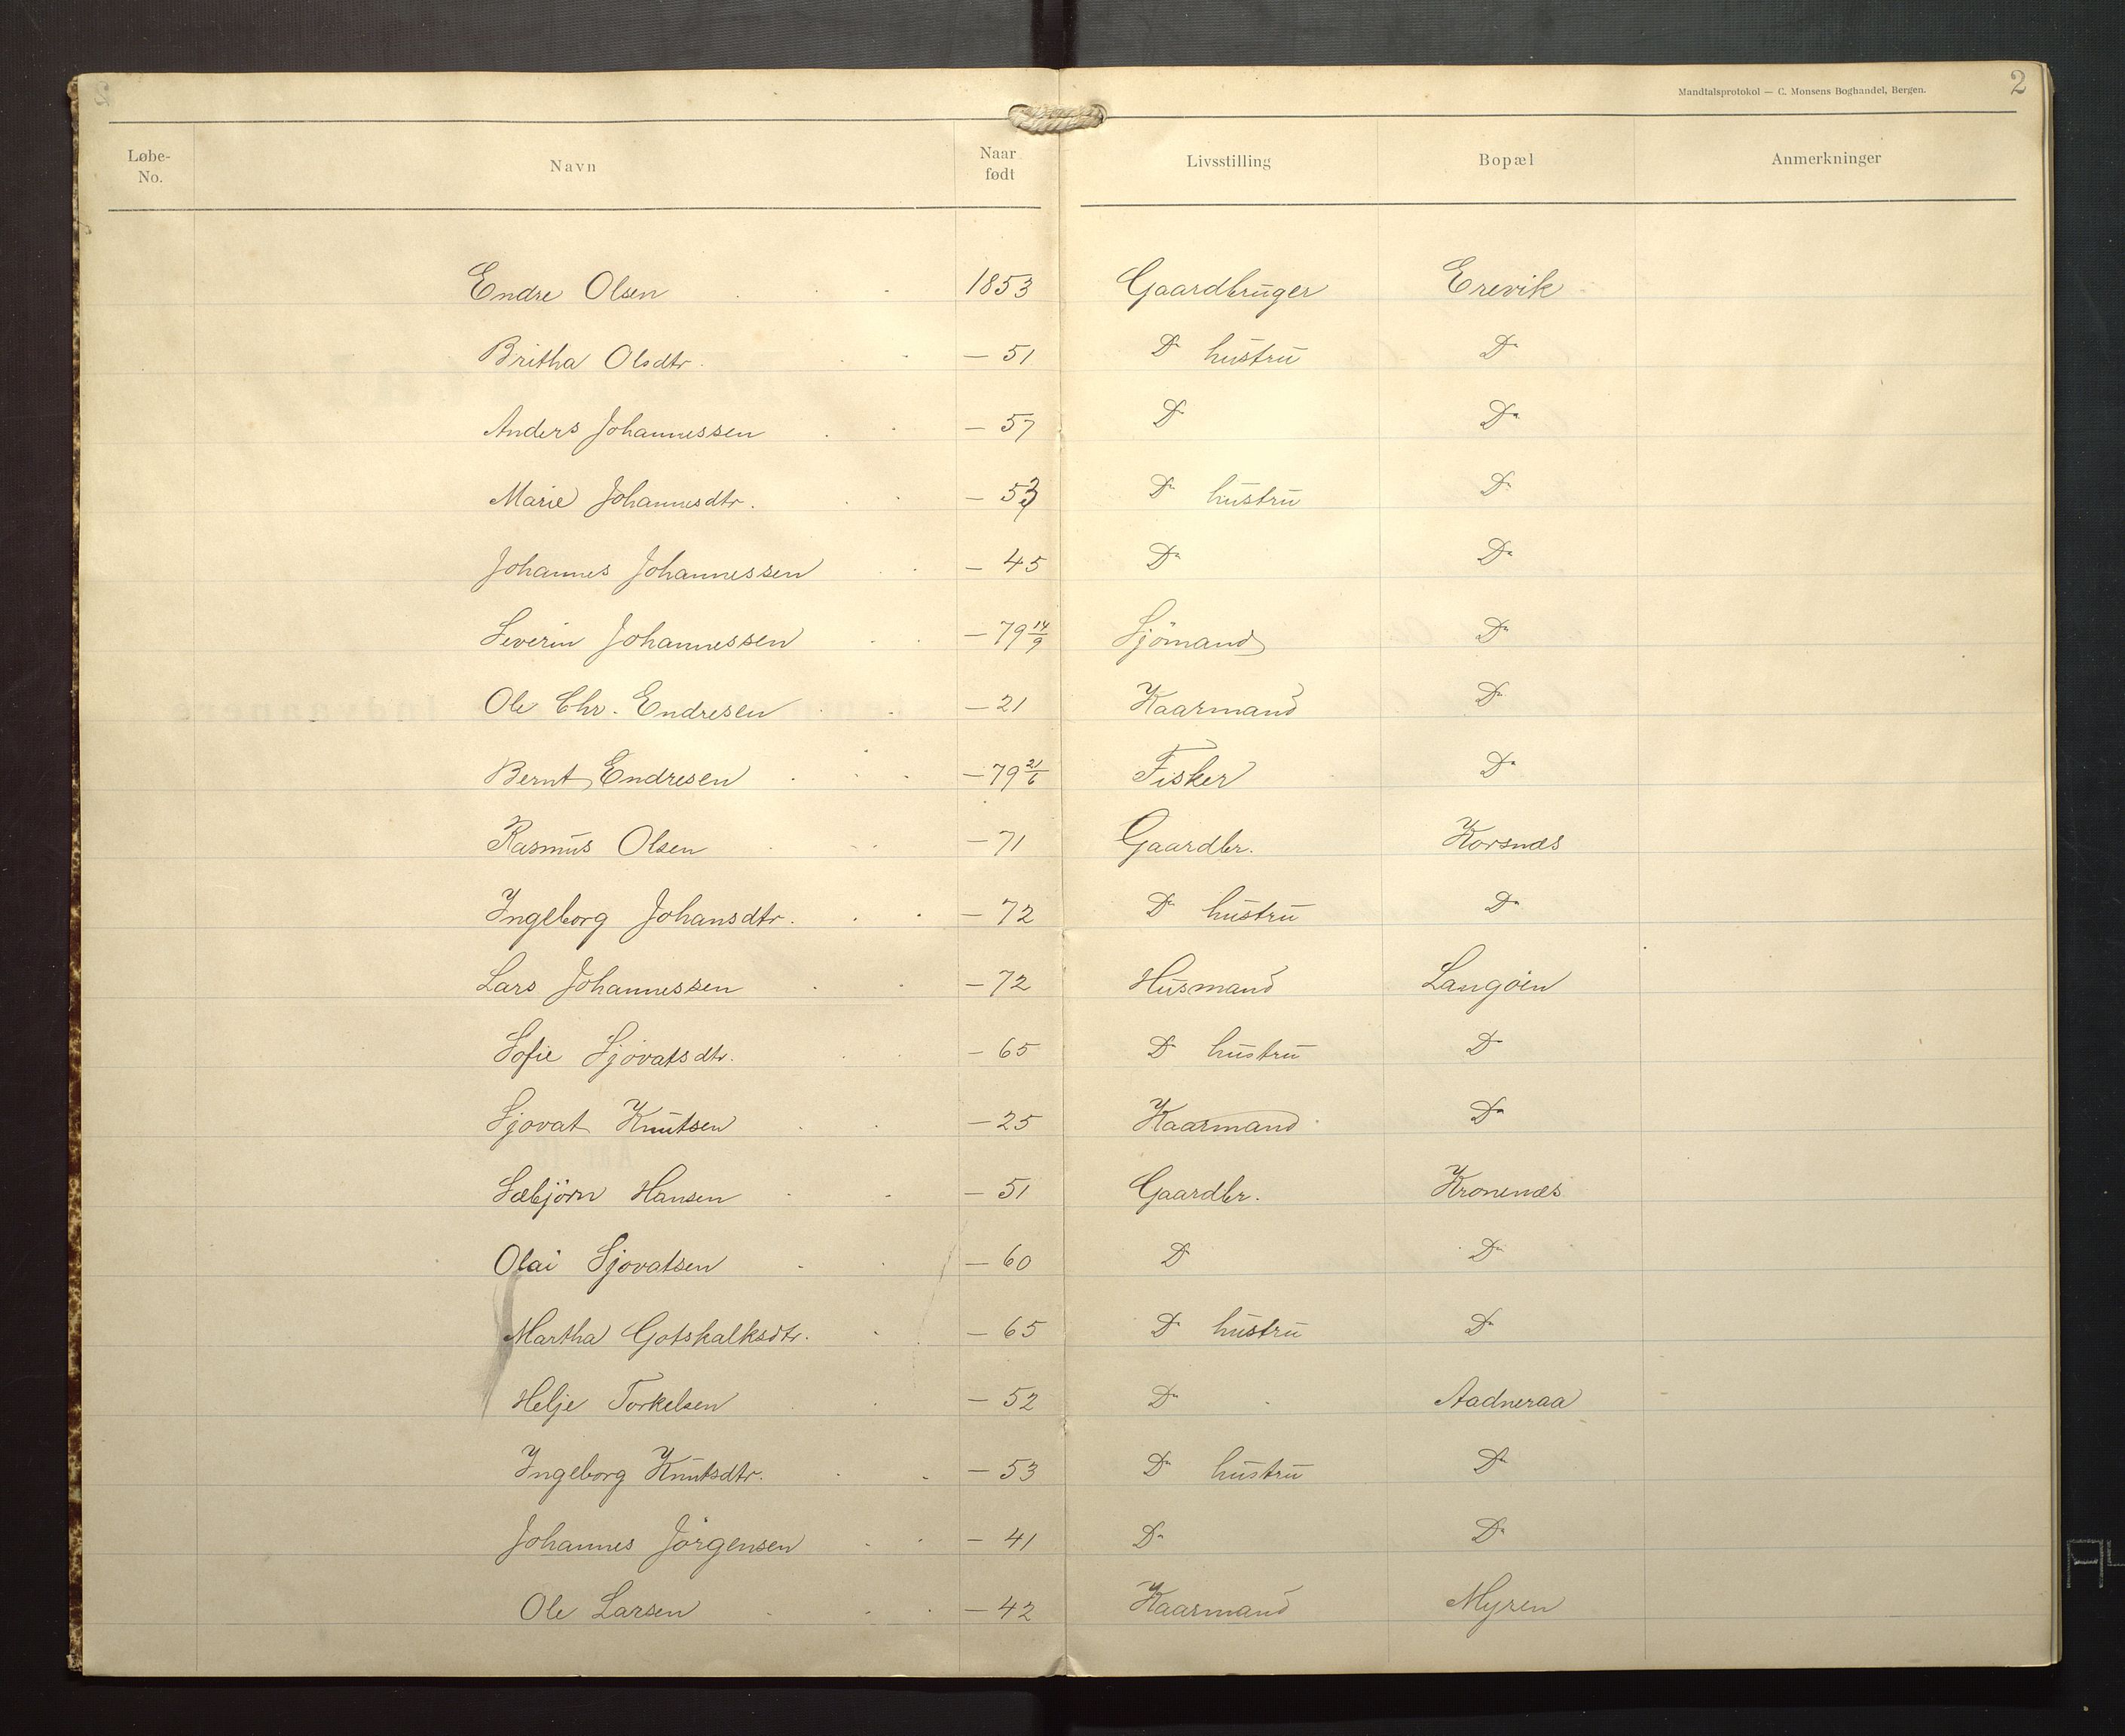 Mandtalsprotokol — C. Monsens Boghandel, Bergen. 2
Løbe-No. Navn Naar født Livsstilling Bopæl Anmerkninger
Endre Olsen 1853 Gaardbruger Erevik
Britha Olsdtr. — 51 Do hustru Do
Anders Johannessen — 57 Do Do
Marie Johannesdtr. — 53 Do hustru Do
Johannes Johannessen — 45 Do Do
Severin Johannessen — 79 14/9 Sjömand Do
Ole Chr. Endresen — 21 Kaarmand Do
Bernt Endresen — 79 21/6 Fisker Do
Rasmus Olsen — 71 Gaardbr. Korsnæs
Ingeborg Johansdtr. — 72 Do hustru Do
Lars Johannessen — 72 Husmand Langöen
Sofie Sjovatsdtr. — 65 Do hustru Do
Sjovat Knutsen — 25 Kaarmand Do
Sæbjörn Hansen — 51 Gaardbr. Kronenæs
Olai Sjovatsen — 60 Do Do
Martha Gotskalksdtr. — 65 Do hustru Do
Helje Torkelsen — 52 Do Aadneraa
Ingeborg Knutsdtr. — 53 Do hustru Do
Johannes Jörgensen — 41 Do Do
Ole Larsen — 42 Kaarmand Myren